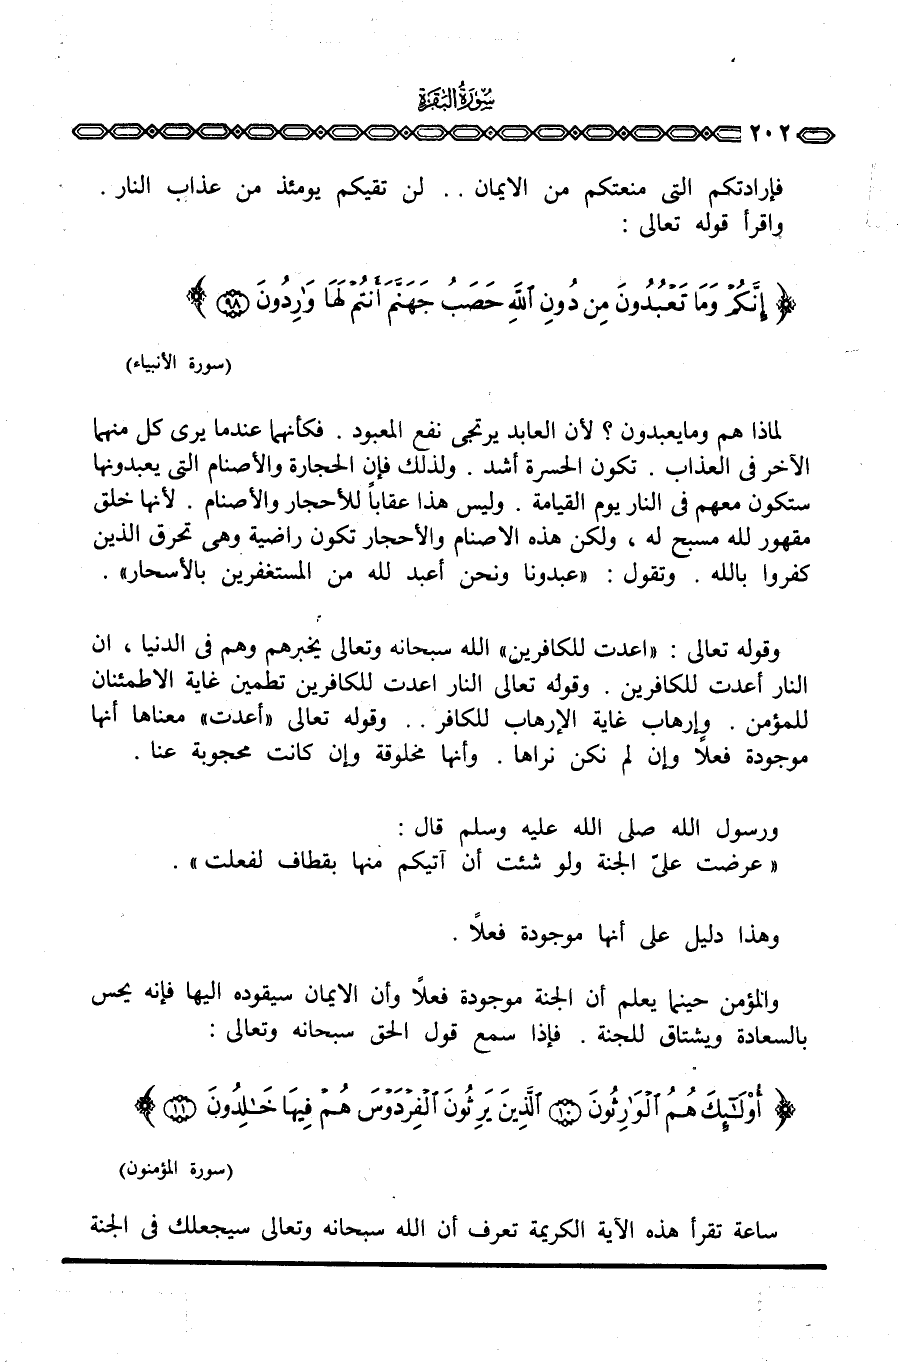 سُورَةُ البَقَرَة
٢٠٢
فإرادتكم التى منعتكم من الايمان .. لن تقيكم يومئذ من عذاب النار .
واقرأ قوله تعالى :
﴿ إِنَّكُمْ وَمَا تَعْبُدُونَ مِن دُونِ ٱللَّهِ حَصَبُ جَهَنَّمَ أَنتُمْ لَهَا وَٰرِدُونَ ٩٨ ﴾
(سورة الأنبياء)
لماذا هم ومايعبدون ؟ لأن العابد يرتجى نفع المعبود . فكأنهما عندما يرى كل منهما
الآخر فى العذاب . تكون الحسرة أشد . ولذلك فإن الحجارة والأصنام التى يعبدونها
ستكون معهم فى النار يوم القيامة . وليس هذا عقاباً للأحجار والأصنام . لأنها خلق
مقهور لله مسبح له ، ولكن هذه الاصنام والأحجار تكون راضية وهى تحرق الذين
كفروا بالله . وتقول : «عبدونا ونحن أعبد لله من المستغفرين بالأسحار» .
وقوله تعالى : «اعدت للكافرين» الله سبحانه وتعالى يخبرهم وهم فى الدنيا ، ان
النار أعدت للكافرين . وقوله تعالى النار اعدت للكافرين تطمين غاية الاطمئنان
للمؤمن . وإرهاب غاية الإرهاب للكافر .. وقوله تعالى «أعدت» معناها أنها
موجودة فعلاً وإن لم نكن نراها . وأنها مخلوقة وإن كانت محجوبة عنا .
ورسول الله صلى الله عليه وسلم قال :
« عرضت علىّ الجنة ولو شئت أن آتيكم منها بقطاف لفعلت» .
وهذا دليل على أنها موجودة فعلاً .
والمؤمن حينما يعلم أن الجنة موجودة فعلاً وأن الايمان سيقوده اليها فإنه يحس
بالسعادة ويشتاق للجنة . فإذا سمع قول الحق سبحانه وتعالى :
﴿ أُوْلَٰٓئِكَ هُمُ ٱلْوَٰرِثُونَ ١٠ ٱلَّذِينَ يَرِثُونَ ٱلْفِرْدَوْسَ هُمْ فِيهَا خَـٰلِدُونَ ١١ ﴾
(سورة المؤمنون)
ساعة تقرأ هذه الآية الكريمة تعرف أن الله سبحانه وتعالى سيجعلك فى الجنة